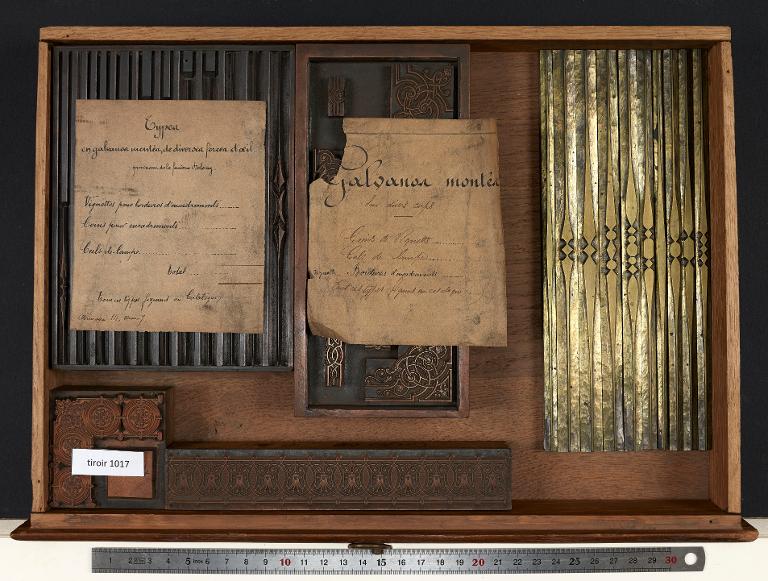 Types
en galvanos montés, de diverses forces d'œil
Vignettes pour bordures d'encadrements
Coins pour encadrements
Culs-de-lampe
Total
Tous ces types figurent au Catalogue
Galvanos montés
Sur divers corps
Coins de Vignette
Culs de Lampe
Vignette Bordures d'encadrements
Tous ces types figurent au catalogue
tiroir 1017
1 2 3 4 5 6 7 8 9 10 11 12 13 14 15 16 17 18 19 20 21 22 23 24 25 26 27 28 29 30